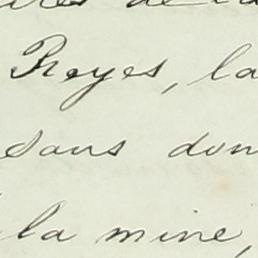 de la
Reyes, la
sans don
la mine,